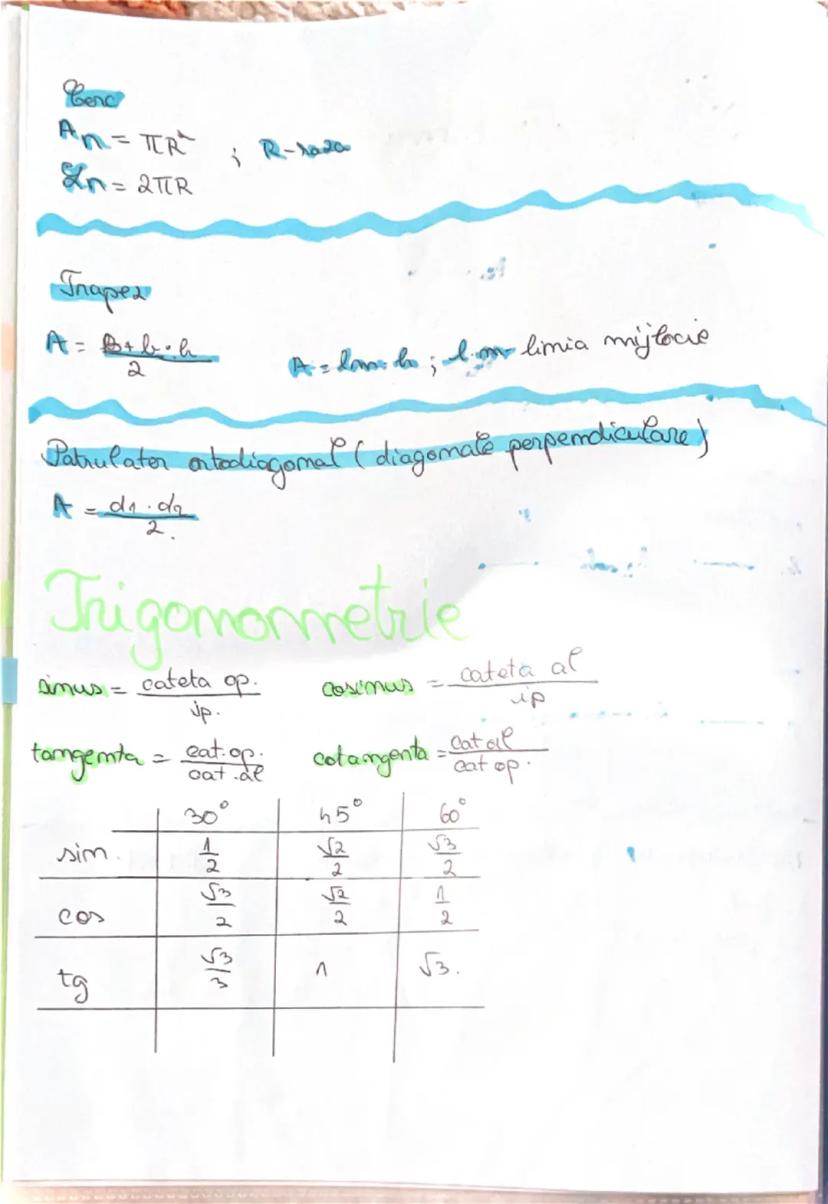 Cerc
An = πR² ; R-raza
Ln = 2πR
Trapez
A = B+b·h / 2    A = lm·h ; l.m- linia mijlocie
Patrulater ortodiagonal (diagonale perpendiculare)
A = d1·d2 / 2.
Trigonometrie
sinus = cateta op. / ip.    cosinus = cateta al / ip
tangenta = cat.op. / cat.al    cotangenta = cat al / cat op.
30° 45° 60°
sin 1/2 √2/2 √3/2
cos √3/2 √2/2 1/2
tg √3/3 1 √3.